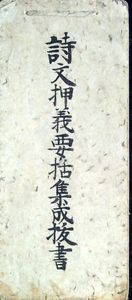 詩文押義要括集成抜書